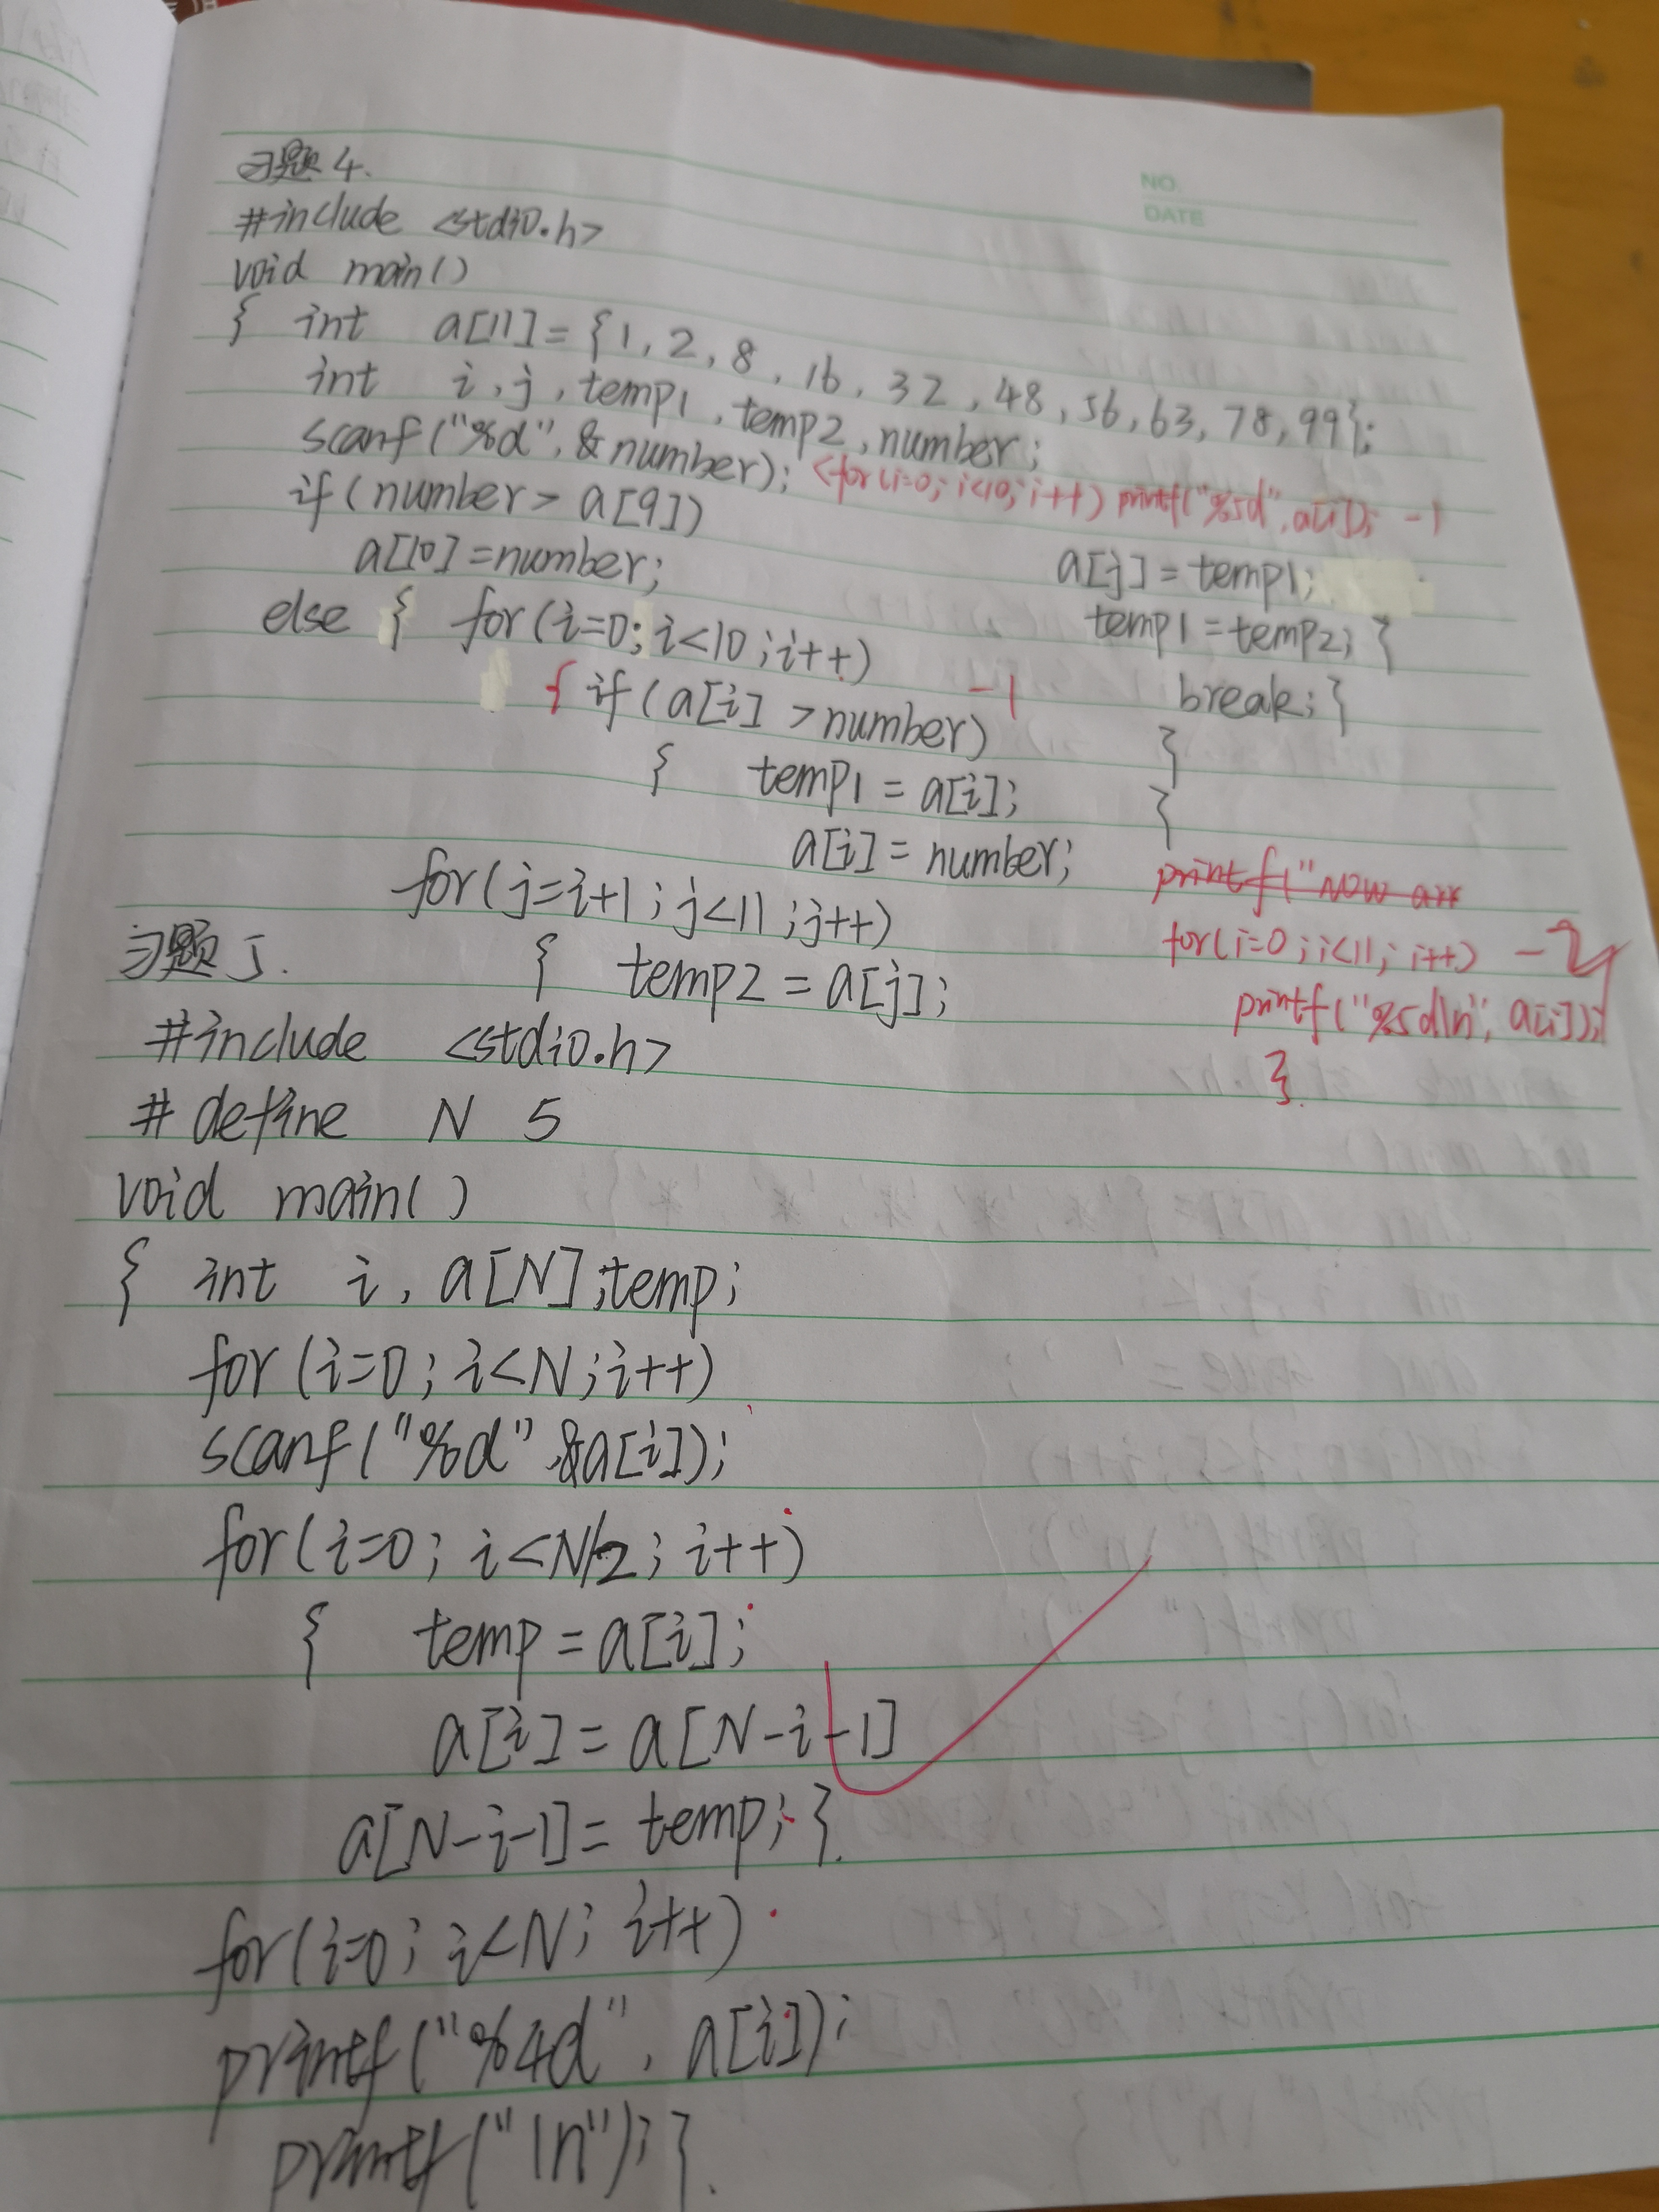 NO.
DATE
习题4.
#include <stdio.h>
void main()
{ int a[11]={1,2,8,16,32,48,56,63,78,99};
int i,j,temp1,temp2,number;
scanf("%d",&number); <for(i=0;i<10;i++) printf("%5d",a[i]); -1
if(number>a[9])
a[10]=number;
else { for(i=0;i<10;i++)
{ if(a[i]>number) -1
{ temp1=a[i];
a[i]=number;
for(j=i+1;j<11;j++)
{ temp2=a[j];
a[j]=temp1;
temp1=temp2; }
break; }
}
}
printf("now arr
for(i=0;i<11;i++) -2
printf("%5d\n",a[i]);
}
习题5.
#include <stdio.h>
#define N 5
void main()
{ int i,a[N];temp;
for(i=0;i<N;i++)
scanf("%d",&a[i]);
for(i=0;i<N/2;i++)
{ temp=a[i];
a[i]=a[N-i-1]
a[N-i-1]=temp; }.
for(i=0;i<N;i++)
printf("%4d",a[i]);
printf("\n");}.